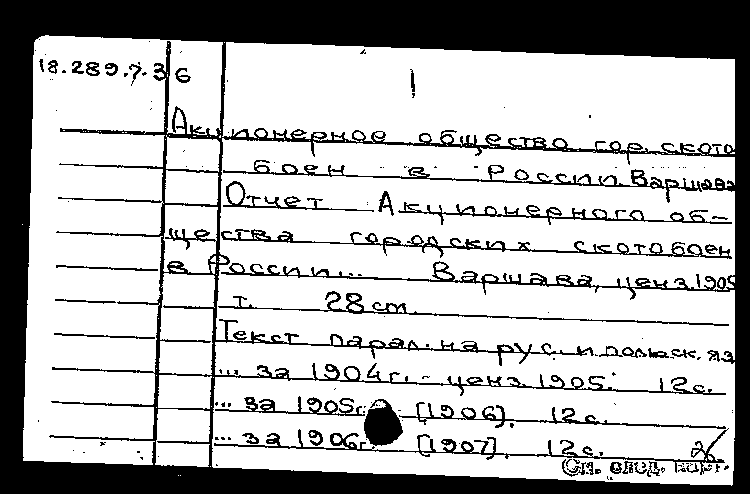 18.289.7.36
1
Акционерное общество гор. ското
боен в России. Варшава
Отчет Акционерного об-
щества городских скотобоен
в России... Варшава, ценз. 1905
т. 28 cm.
Текст парал. на рус. и польск. яз
... за 1904 г. - ценз. 1905. 12 с.
... за 1905 г. [1906]. 12 с.
... за 1906 г. [1907]. 12 с.
См. след. карт.